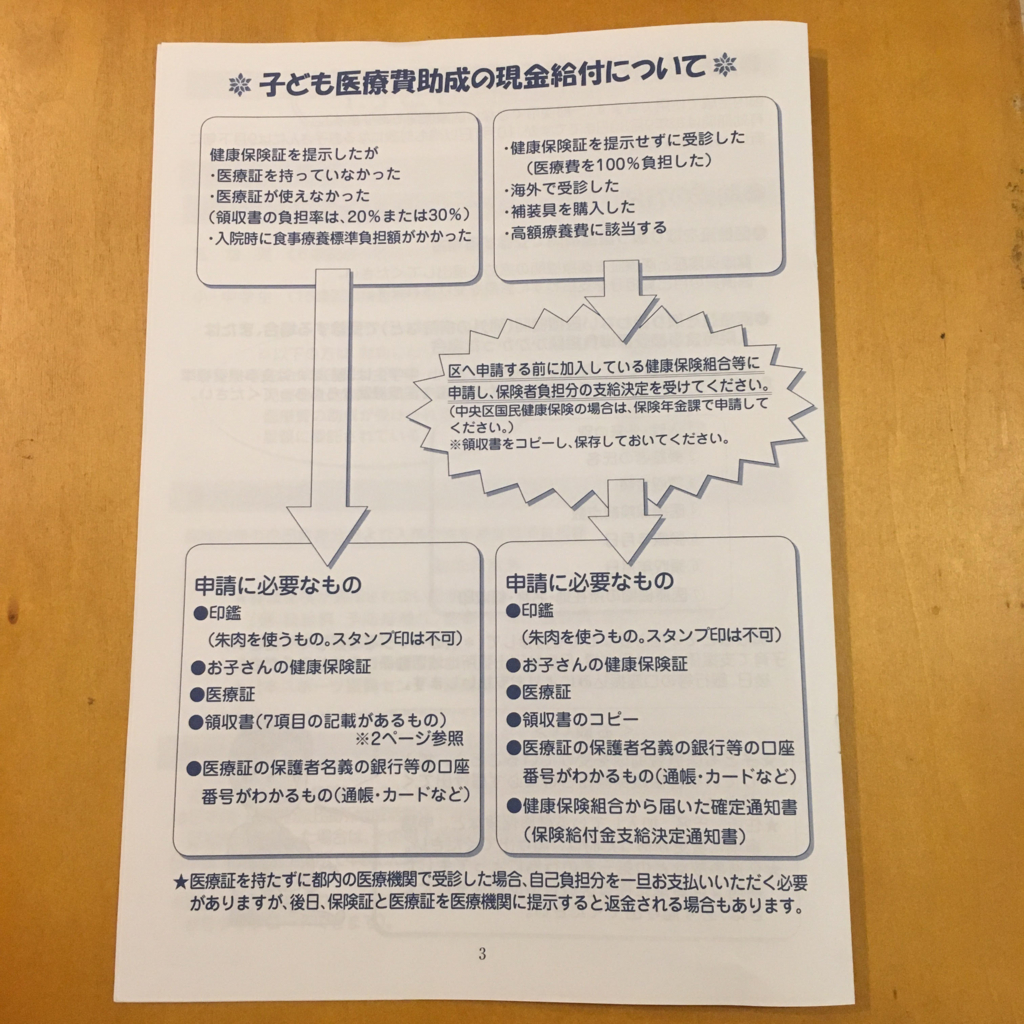 子ども医療費助成の現金給付について
健康保険証を提示したが
・医療証を持っていなかった
・医療証が使えなかった
(領収書の負担率は、20%または30%)
・入院時に食事療養標準負担額がかかった
・健康保険証を提示せずに受診した
(医療費を100%負担した)
・海外で受診した
・補装具を購入した
・高額療養費に該当する
区へ申請する前に加入している健康保険組合等に
申請し、保険者負担分の支給決定を受けてください。
(中央区国民健康保険の場合は、保険年金課で申請して
ください。)
※領収書をコピーし、保存しておいてください。
申請に必要なもの
●印鑑
(朱肉を使うもの。スタンプ印は不可)
●お子さんの健康保険証
●医療証
●領収書(7項目の記載があるもの)
※2ページ参照
●医療証の保護者名義の銀行等の口座
番号がわかるもの(通帳・カードなど)
申請に必要なもの
●印鑑
(朱肉を使うもの。スタンプ印は不可)
●お子さんの健康保険証
●医療証
●領収書のコピー
●医療証の保護者名義の銀行等の口座
番号がわかるもの(通帳・カードなど)
●健康保険組合から届いた確定通知書
(保険給付金支給決定通知書)
★医療証を持たずに都内の医療機関で受診した場合、自己負担分を一旦お支払いいただく必要
がありますが、後日、保険証と医療証を医療機関に提示すると返金される場合もあります。
3